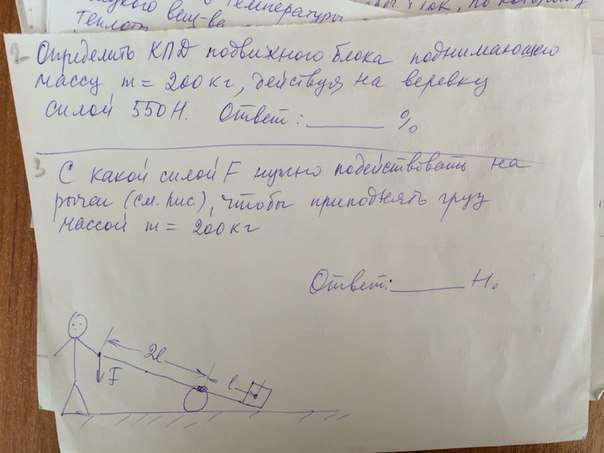 вещ-ва температуры
теплоты
2 Определить КПД подвижного блока поднимающего
массу m = 200 кг, действуя на веревку
силой 550 Н. Ответ: ______ %
3 С какой силой F нужно подействовать на
рычаг (см. рис), чтобы приподнять груз
массой m = 200 кг
Ответ: ______ Н.
2l
l
F